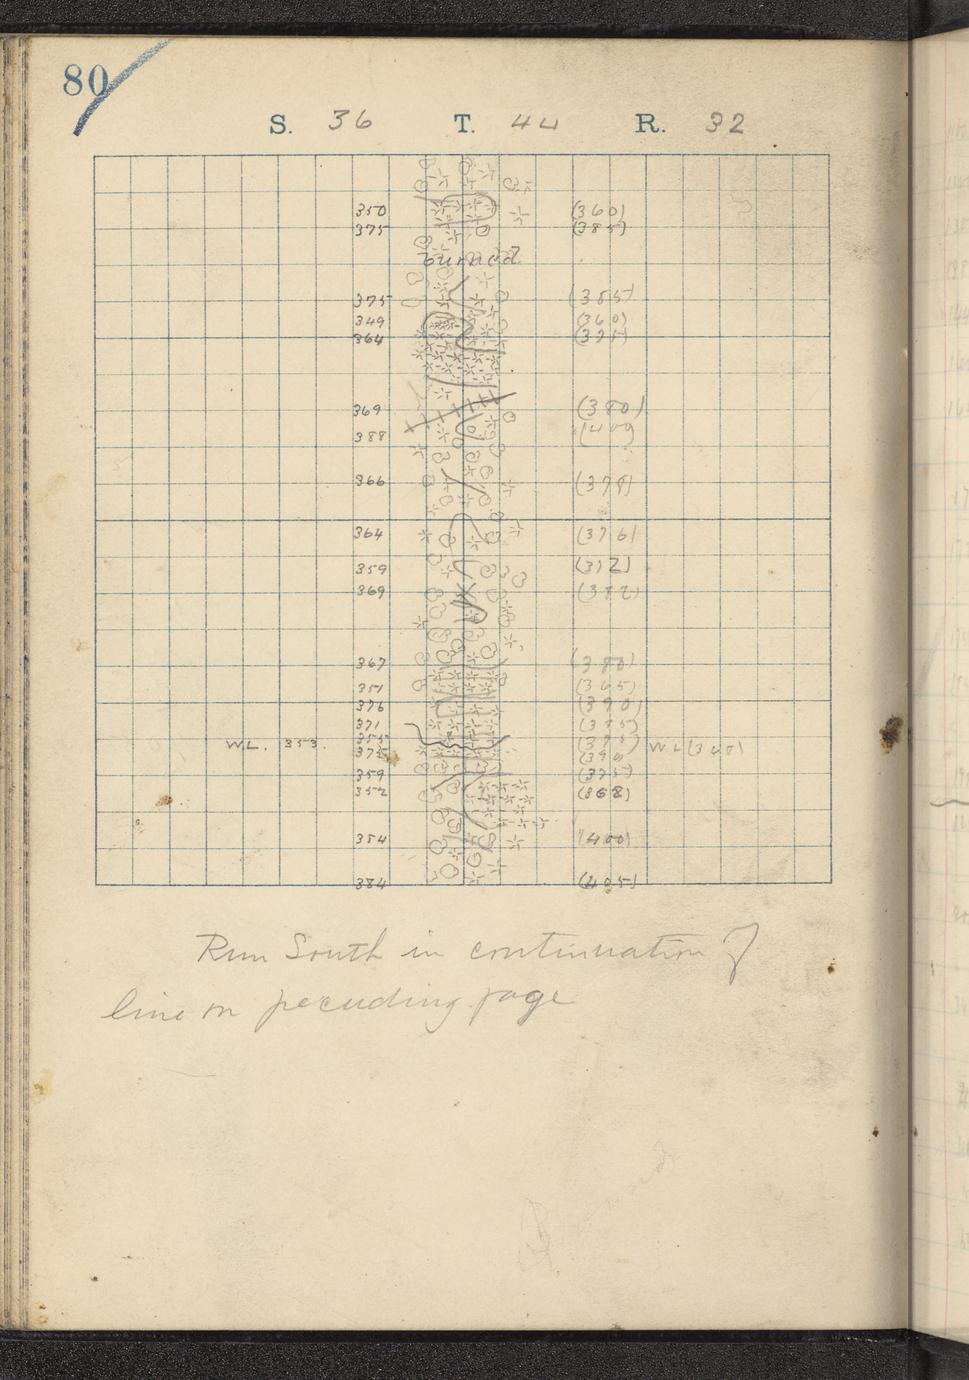 80
S. 36 T. 44 R. 32
350 (360)
375 (385)
burned
375 (385)
349 (360)
364 (375)
369 (380)
388
366 (378)
364 (376)
359 (372)
369 (382)
367 (380)
351 (365)
376 (390)
371 (385)
W.L. 353. W L
375 (390)
359 (375)
352 (368)
384 (400)
384 (405)
Run South in continuation of
line on peceuding page